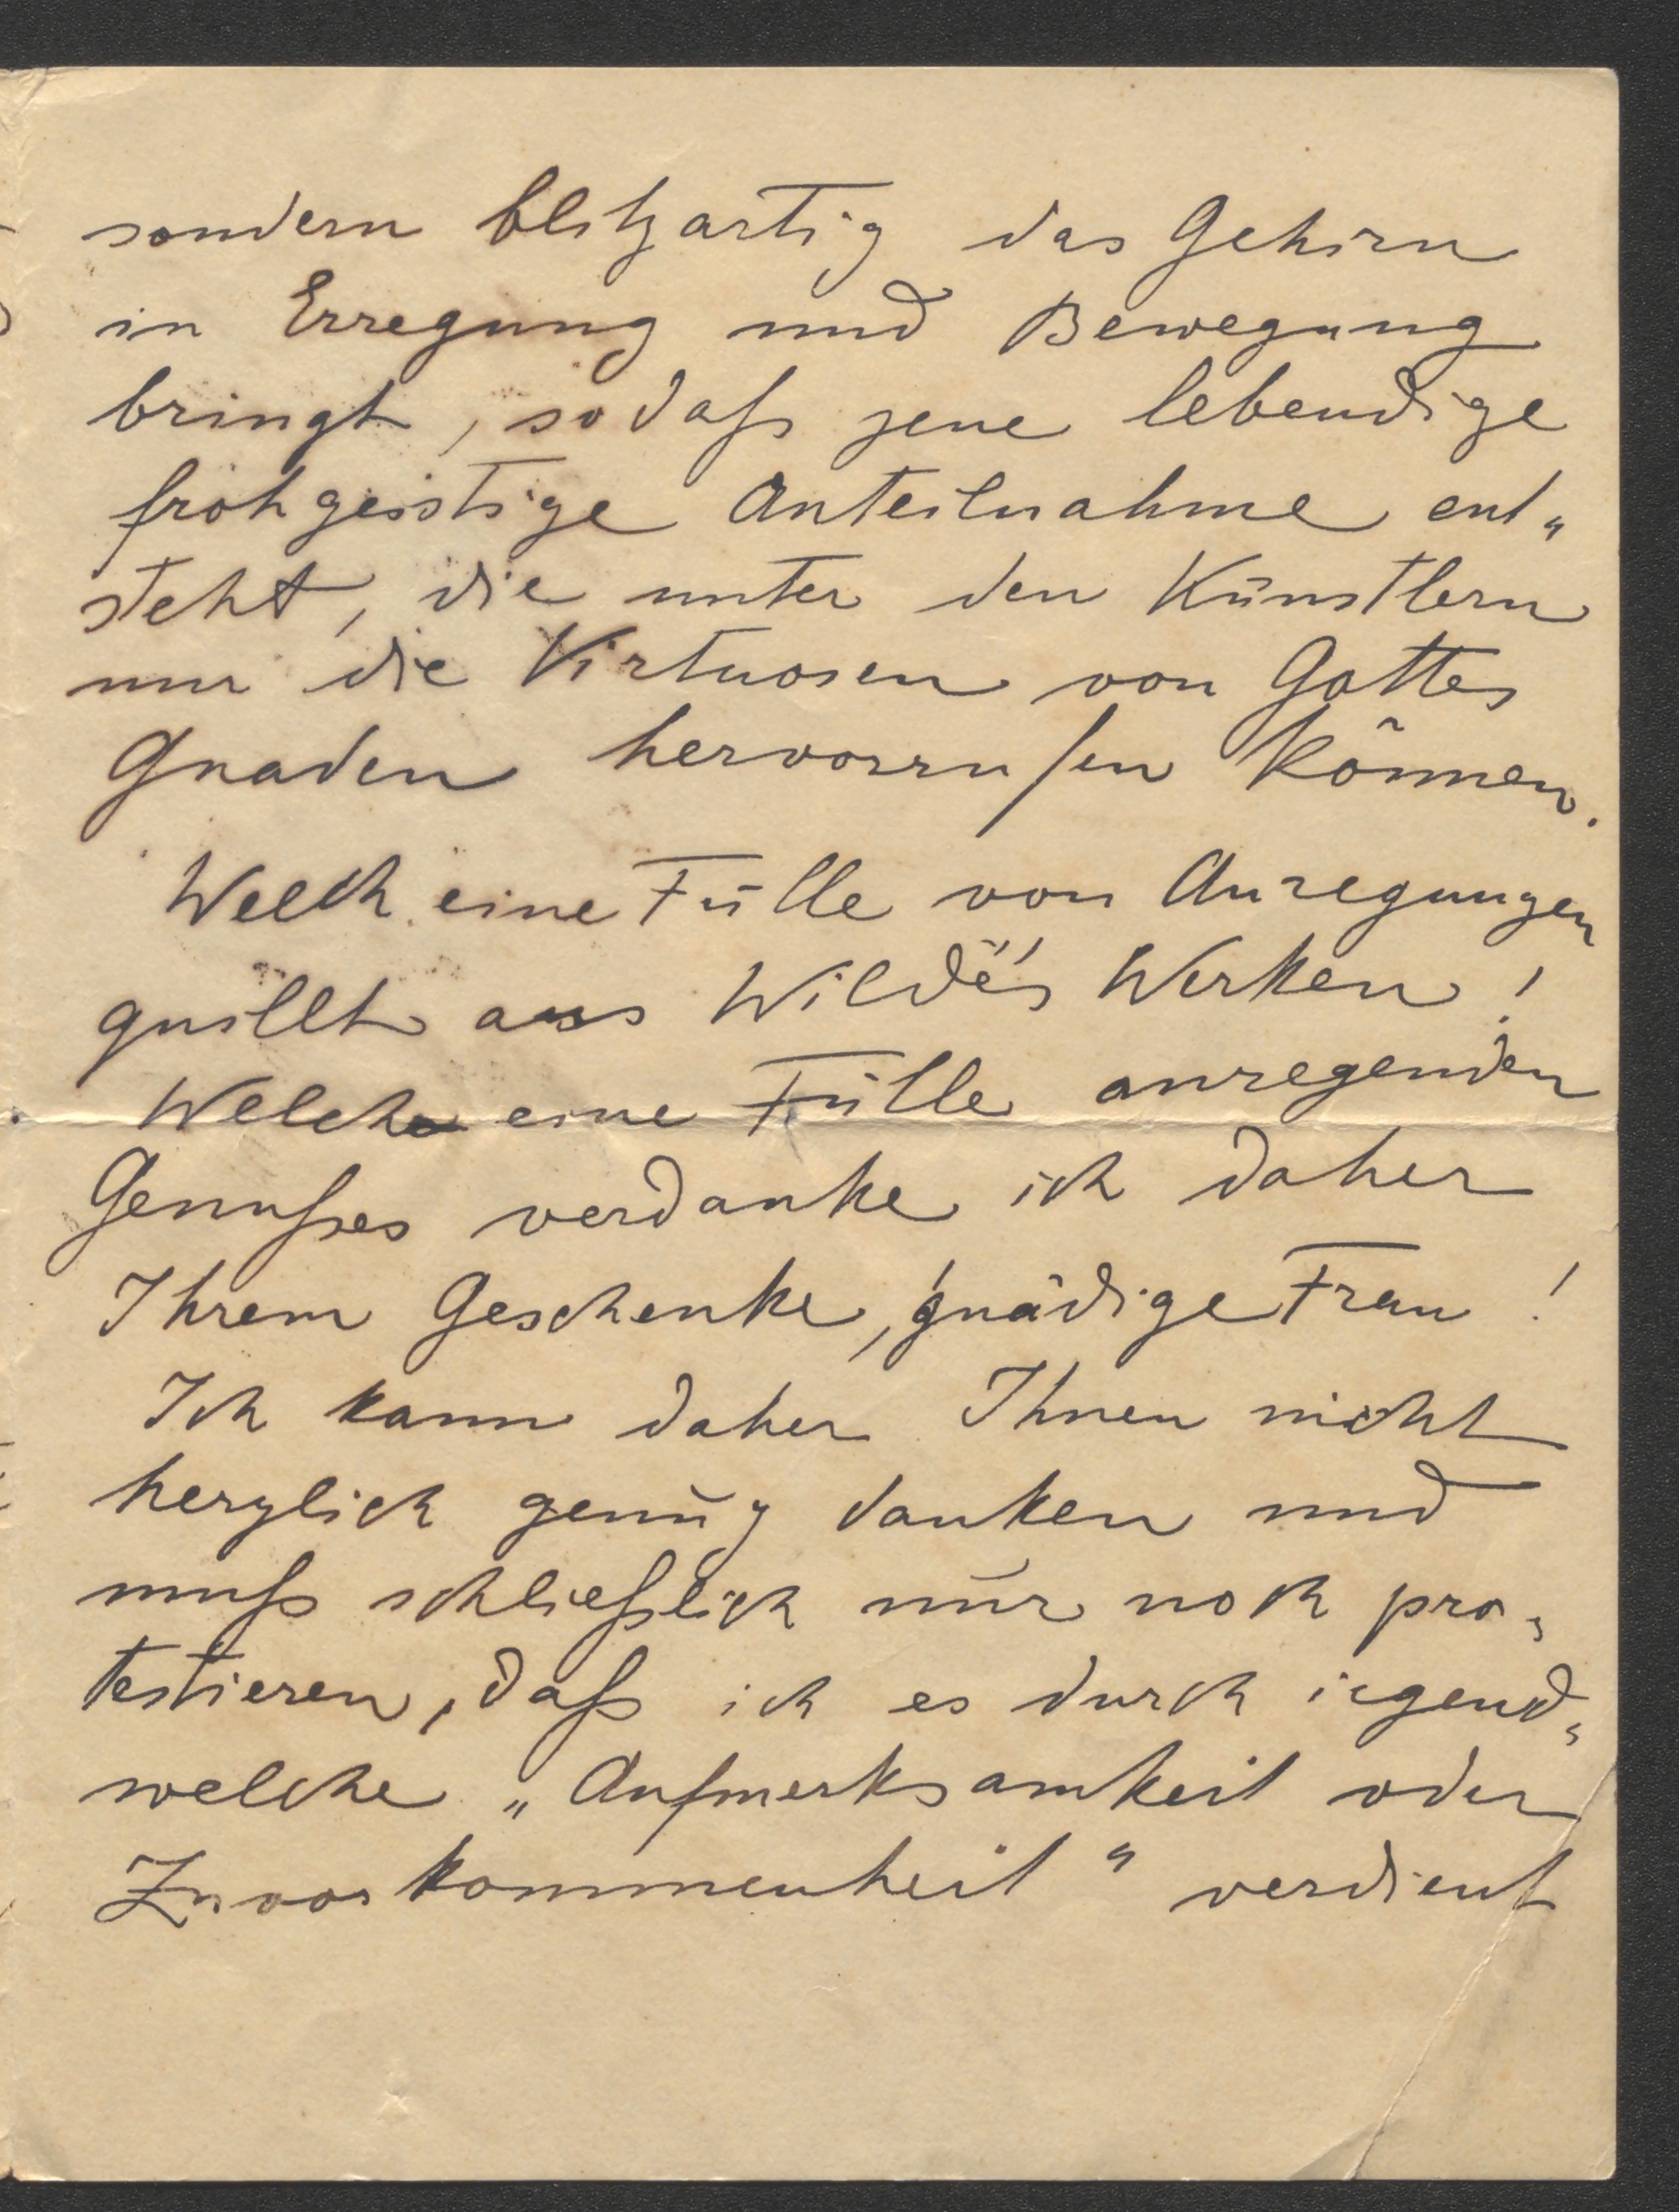 sondern blitzartig das Gehirn
in Erregung und Bewegung
bringt, sodaß jene lebendige
frohgeistige Anteilnahme ent„
steht, die unter den Künstlern
nur die Virtuosen von Gottes
Gnaden hervorrufen können.
Welch eine Fülle von Anregungen
quillt aus Wilde's Werken!
Welch eine Fülle anregenden
Genußes verdanke ich daher
Ihrem Geschenke, gnädige Frau!
Ich kann daher Ihnen nicht
herzlich genug danken und
muß schließlich nur noch pro„
testieren, daß ich es durch irgend„
welche „Aufmerksamkeit oder
Zuvorkommenheit" verdient